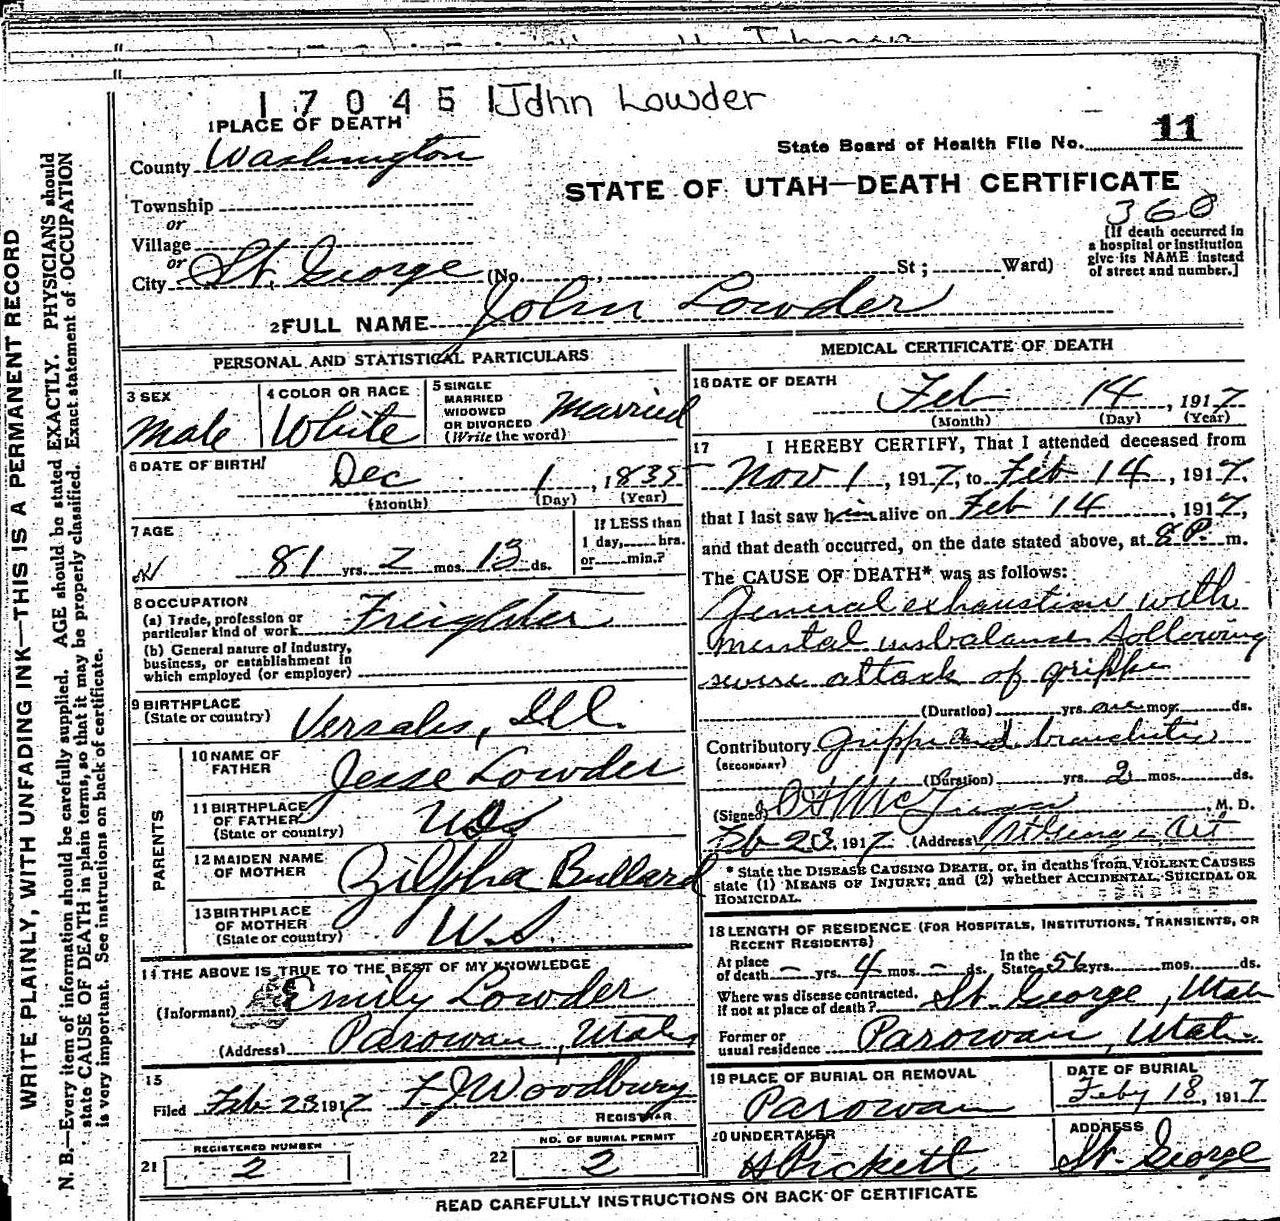 1 7 0 4 5 1 John Lowder
1 PLACE OF DEATH
County Washington
State Board of Health File No. 11
STATE OF UTAH—DEATH CERTIFICATE
360
Township
or
Village
or
City St. George (No. St; Ward)
[If death occurred in
a hospital or institution
give its NAME instead
of street and number.]
2 FULL NAME John Lowder
PERSONAL AND STATISTICAL PARTICULARS
3 SEX
Male
4 COLOR OR RACE
White
5 SINGLE
MARRIED
WIDOWED
OR DIVORCED
(Write the word)
Married
6 DATE OF BIRTH
Dec 1, 1835
(Month) (Day) (Year)
7 AGE
81 yrs. 2 mos. 13 ds.
If LESS than
1 day, hrs.
or min.?
8 OCCUPATION
(a) Trade, profession or
particular kind of work Freighter
(b) General nature of Industry,
business, or establishment in
which employed (or employer)
9 BIRTHPLACE
(State or country) Versales, Ill.
PARENTS
10 NAME OF
FATHER Jesse Lowder
11 BIRTHPLACE
OF FATHER
(State or country) U.S
12 MAIDEN NAME
OF MOTHER Zilpha Bullard
13 BIRTHPLACE
OF MOTHER
(State or country) U.S.
14 THE ABOVE IS TRUE TO THE BEST OF MY KNOWLEDGE
(Informant) Emily Lowder
(Address) Parowan, Utah
15
Filed Feb 23 1917 F. J. Woodbury
REGISTRAR
21 REGISTERED NUMBER
2
22 NO. OF BURIAL PERMIT
2
MEDICAL CERTIFICATE OF DEATH
16 DATE OF DEATH
Feb 14, 1917
(Month) (Day) (Year)
17 I HEREBY CERTIFY, That I attended deceased from
Nov 1, 1917, to Feb 14, 1917,
that I last saw him alive on Feb 14, 1917,
and that death occurred, on the date stated above, at 8 P. m.
The CAUSE OF DEATH* was as follows:
General exhaustion with
mental unbalance following
severe attack of grippe
(Duration) yrs. mos. ds.
Contributory Grippe and bronchitis
(SECONDARY)
(Duration) yrs. 2 mos. ds.
(Signed) M. D.
Feb 23, 1917 (Address) St George, Ut
* State the DISEASE CAUSING DEATH, or, in deaths from VIOLENT CAUSES
state (1) MEANS OF INJURY; and (2) whether ACCIDENTAL, SUICIDAL OR
HOMICIDAL.
18 LENGTH OF RESIDENCE (FOR HOSPITALS, INSTITUTIONS, TRANSIENTS, OR
RECENT RESIDENTS)
At place
of death – yrs. 4 mos. – ds. In the
State 56 yrs. mos. ds.
Where was disease contracted,
if not at place of death? St. George, Utah
Former or
usual residence Parowan, Utah
19 PLACE OF BURIAL OR REMOVAL
Parowan
DATE OF BURIAL
Feby 18, 1917
20 UNDERTAKER
Pickett
ADDRESS
St. George
READ CAREFULLY INSTRUCTIONS ON BACK OF CERTIFICATE
WRITE PLAINLY, WITH UNFADING INK—THIS IS A PERMANENT RECORD
N. B.—Every item of information should be carefully supplied. AGE should be stated EXACTLY. PHYSICIANS should
state CAUSE OF DEATH in plain terms, so that it may be properly classified. Exact statement of OCCUPATION
is very important. See instructions on back of certificate.